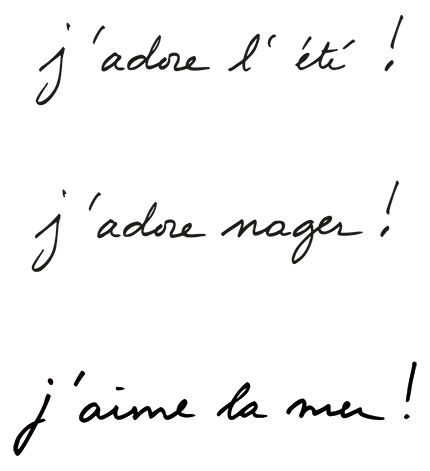 j'adore l'été !
j'adore nager !
j'aime la mer !